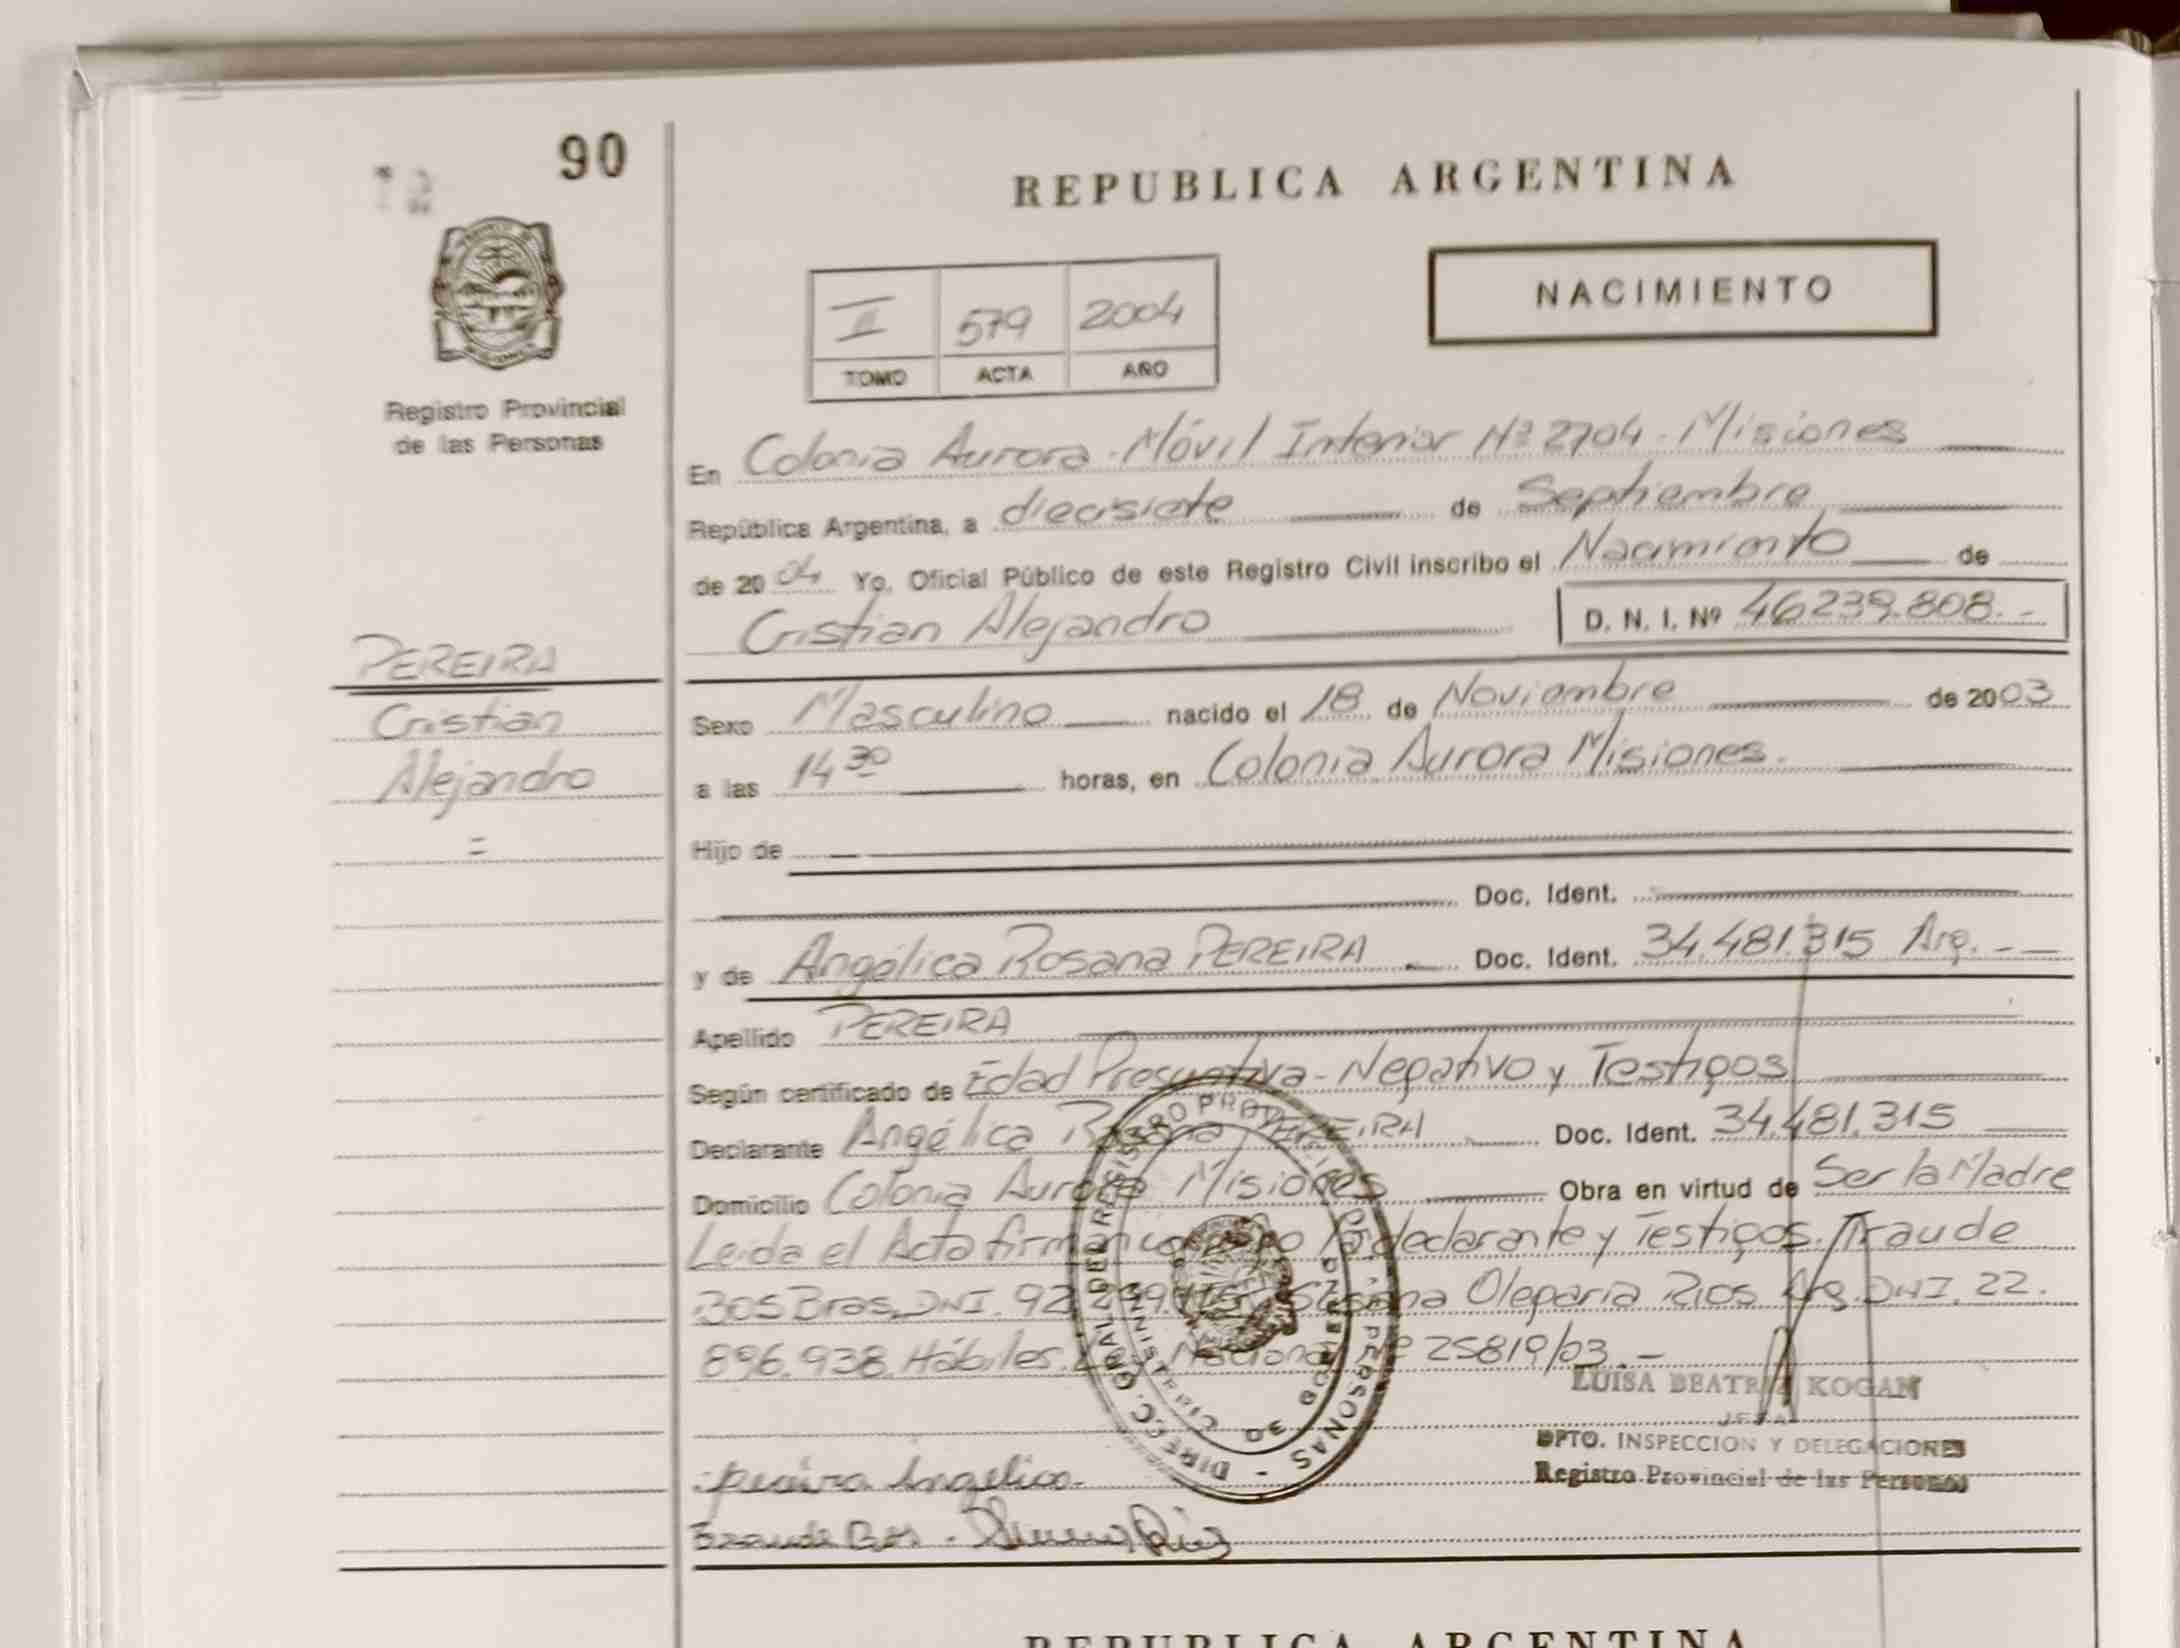 90
REPUBLICA ARGENTINA
II 579 2004
TOMO ACTA AÑO
NACIMIENTO
Registro Provincial
de las Personas
En Colonia Aurora - Móvil Interior Nº 2704 - Misiones
República Argentina, a diecisiete de Septiembre
de 2004 Yo, Oficial Público de este Registro Civil inscribo el Nacimiento de
Cristian Alejandro D. N. I. Nº 46239.808.-
PEREIRA
Cristian
Alejandro
=
Sexo Masculino nacido el 18 de Noviembre de 2003
a las 14 30 horas, en Colonia Aurora Misiones.
Hijo de
Doc. Ident.
y de Angélica Rosana PEREIRA Doc. Ident. 34.481.315 Arg. -
Apellido PEREIRA
Según certificado de Edad Presuntiva - Negativo y Testigos
Declarante Angélica Rosana PEREIRA Doc. Ident. 34.481.315
Domicilio Colonia Aurora Misiones Obra en virtud de Ser la Madre
Leida el Acta firman la declarante y Testigos. Fraude
BOS Bras. DNI. 92 Olegaria Rios Arg. DNI. 22.
896.938. Hábiles. Ley Nacional Nº 25819/03.-
DIREC. GRAL DEL REGISTRO PROVINCIAL DE LAS PERSONAS
LUISA BEATRIZ KOGAN
JEFA
DPTO. INSPECCION Y DELEGACIONES
Registro Provincial de las Personas
pereira Angelica
REPUBLICA ARGENTINA